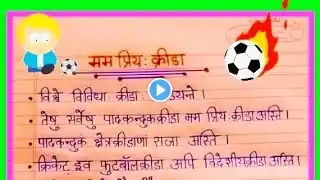 मम प्रिय: क्रीडा
• विश्वे विविधा: क्रीडा:
• तेषु सर्वेषु पादकन्दुकक्रीडा मम प्रिय: क्रीडा अस्ति ।
• पादकन्दुकं क्षेत्रक्रीडाणां राजा अस्ति ।
• क्रिकेट इव फुटबॉलक्रीडा अपि विदेशीयक्रीडा अस्ति ।